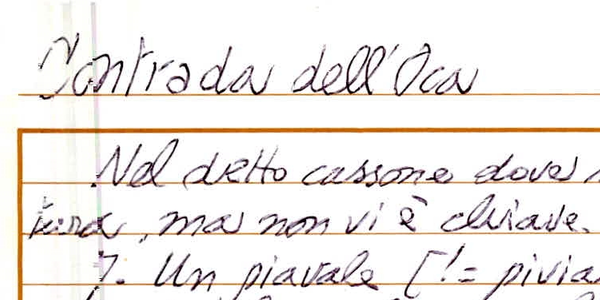 Contrada dell'Oca
Nel detto cassone dove
ma non vi è chiave.
7. Un piavale [!=